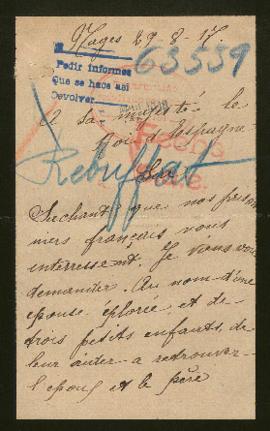 Nages 29-8-17.
63559
Pedir informes
Que se hace así
Devolver
A sa majesté le
Roi d'Espagne
Rebuffat
Sire
Sachant que nos prison
niers français vous
interressent. Je viens vous
demander. Au nom d'une
épouse éplorée et de
trois petits enfants de
leur aider a retrouver
l'epoux et le père